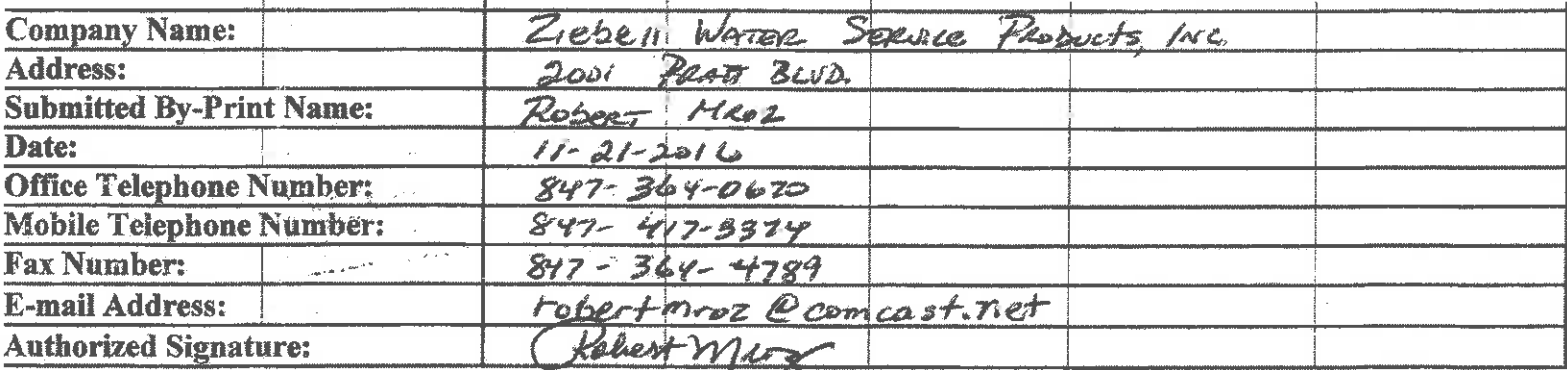 Company Name: Ziebell Water Service Products, Inc.
Address: 2001 Pratt Blvd.
Submitted By-Print Name: Robert Mroz
Date: 11-21-2016
Office Telephone Number: 847-364-0670
Mobile Telephone Number: 847-417-3374
Fax Number: 847-364-4789
E-mail Address: robertmroz@comcast.net
Authorized Signature: Robert Mroz